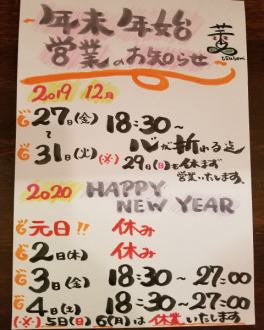 年末年始
営業のお知らせ
2019 12月
27日(金) 18:30~
~ 心が折れる迄
31日(火) (※) 29日(日)も休まず
営業いたします。
2020 HAPPY
NEW YEAR
元日!! 休み
2日(木) 休み
3日(金) 18:30~27:00
4日(土) 18:30~27:00
(※) 5日(日) 6(月)は休業いたします